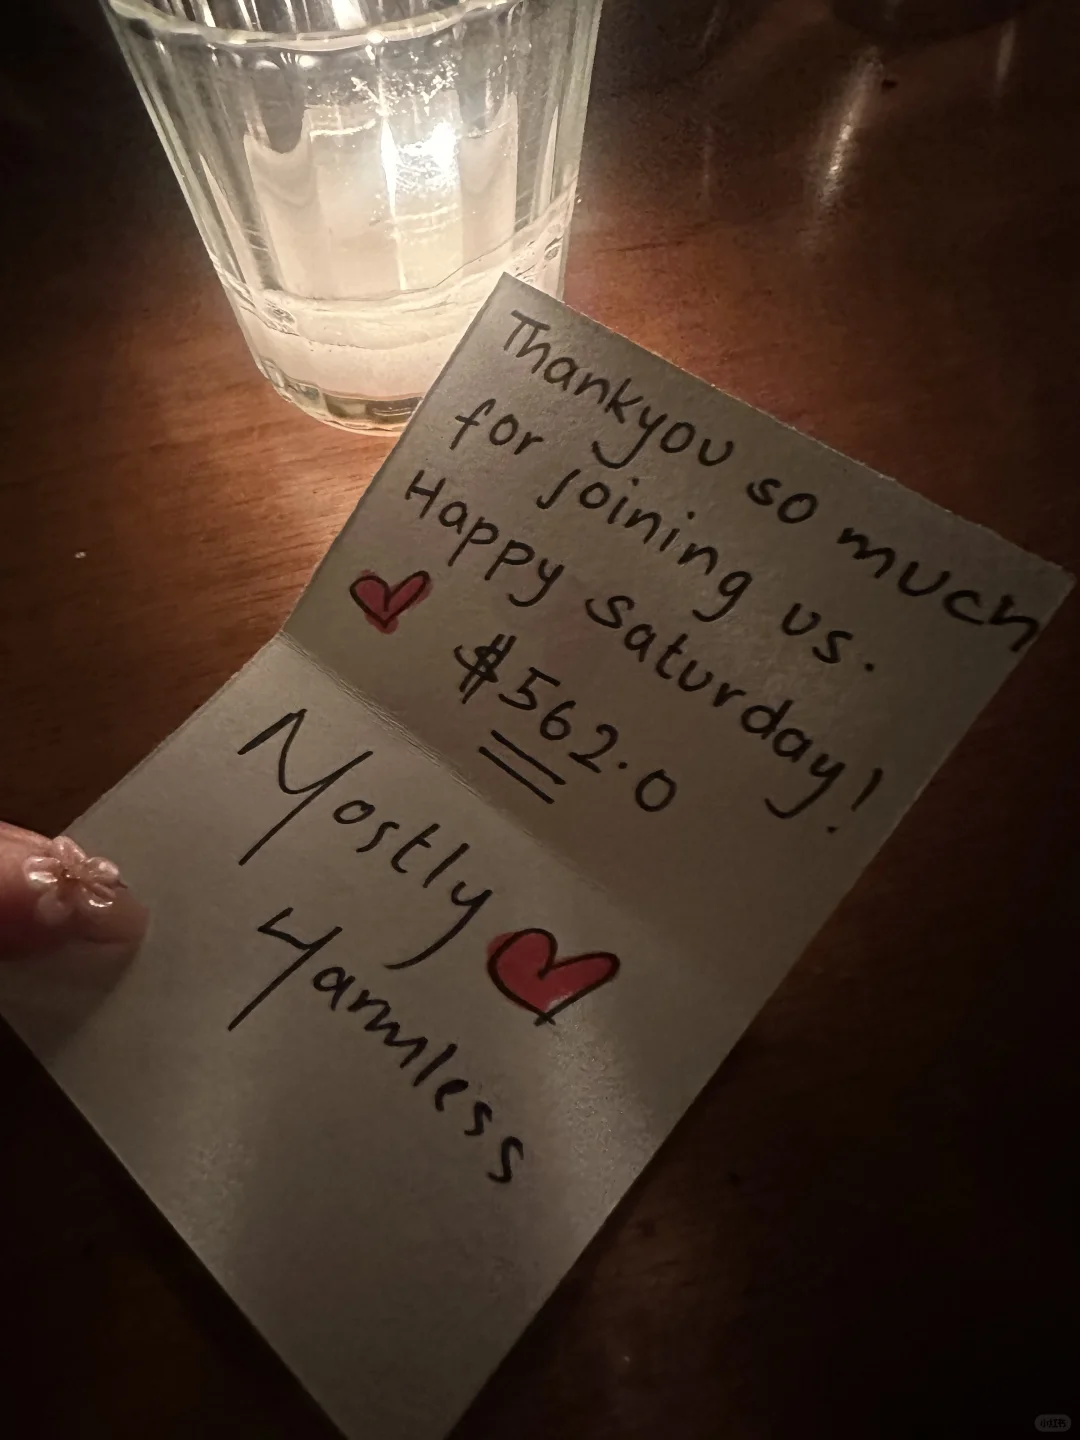 Thankyou so much
for joining us.
Happy Saturday!
$562.0
Mostly
Harmless
小红书